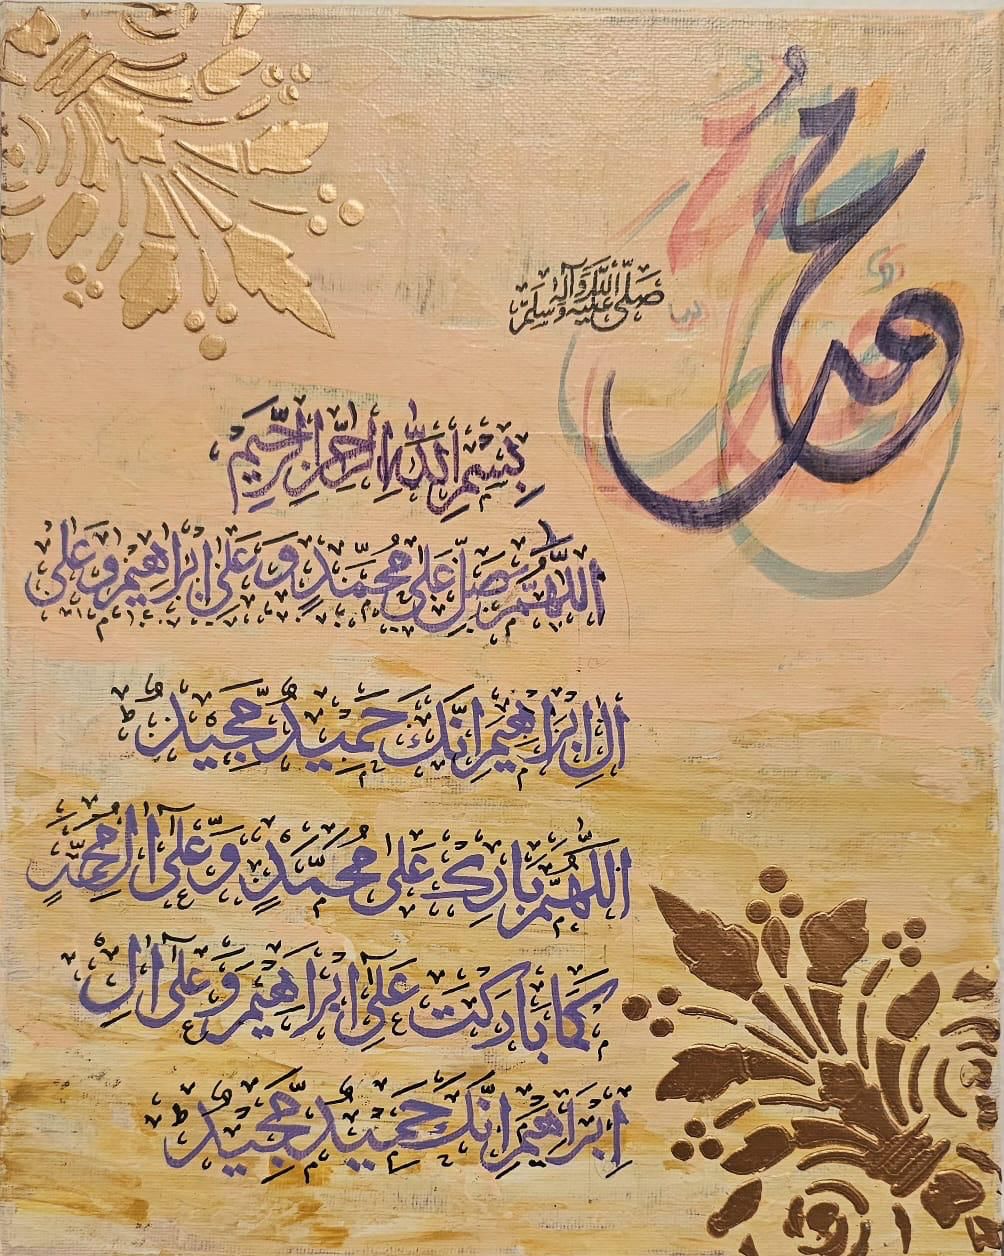 محمد
صَلَّى اللّٰهُ عَلَيْهِ وَآلِهٖ وَسَلَّمَ
بِسْمِ اللّٰهِ الرَّحْمٰنِ الرَّحِيْمِ
اَللّٰهُمَّ صَلِّ عَلٰى مُحَمَّدٍ وَ عَلٰى اِبْرَاهِيْمَ وَعَلٰى
اٰلِ اِبْرَاهِيْمَ اِنَّكَ حَمِيْدٌ مَّجِيْدٌ
اَللّٰهُمَّ بَارِكْ عَلٰى مُحَمَّدٍ وَّعَلٰى اٰلِ مُحَمَّدٍ
كَمَا بَارَكْتَ عَلٰى اِبْرَاهِيْمَ وَعَلٰى اٰلِ
اِبْرَاهِيْمَ اِنَّكَ حَمِيْدٌ مَّجِيْدٌ